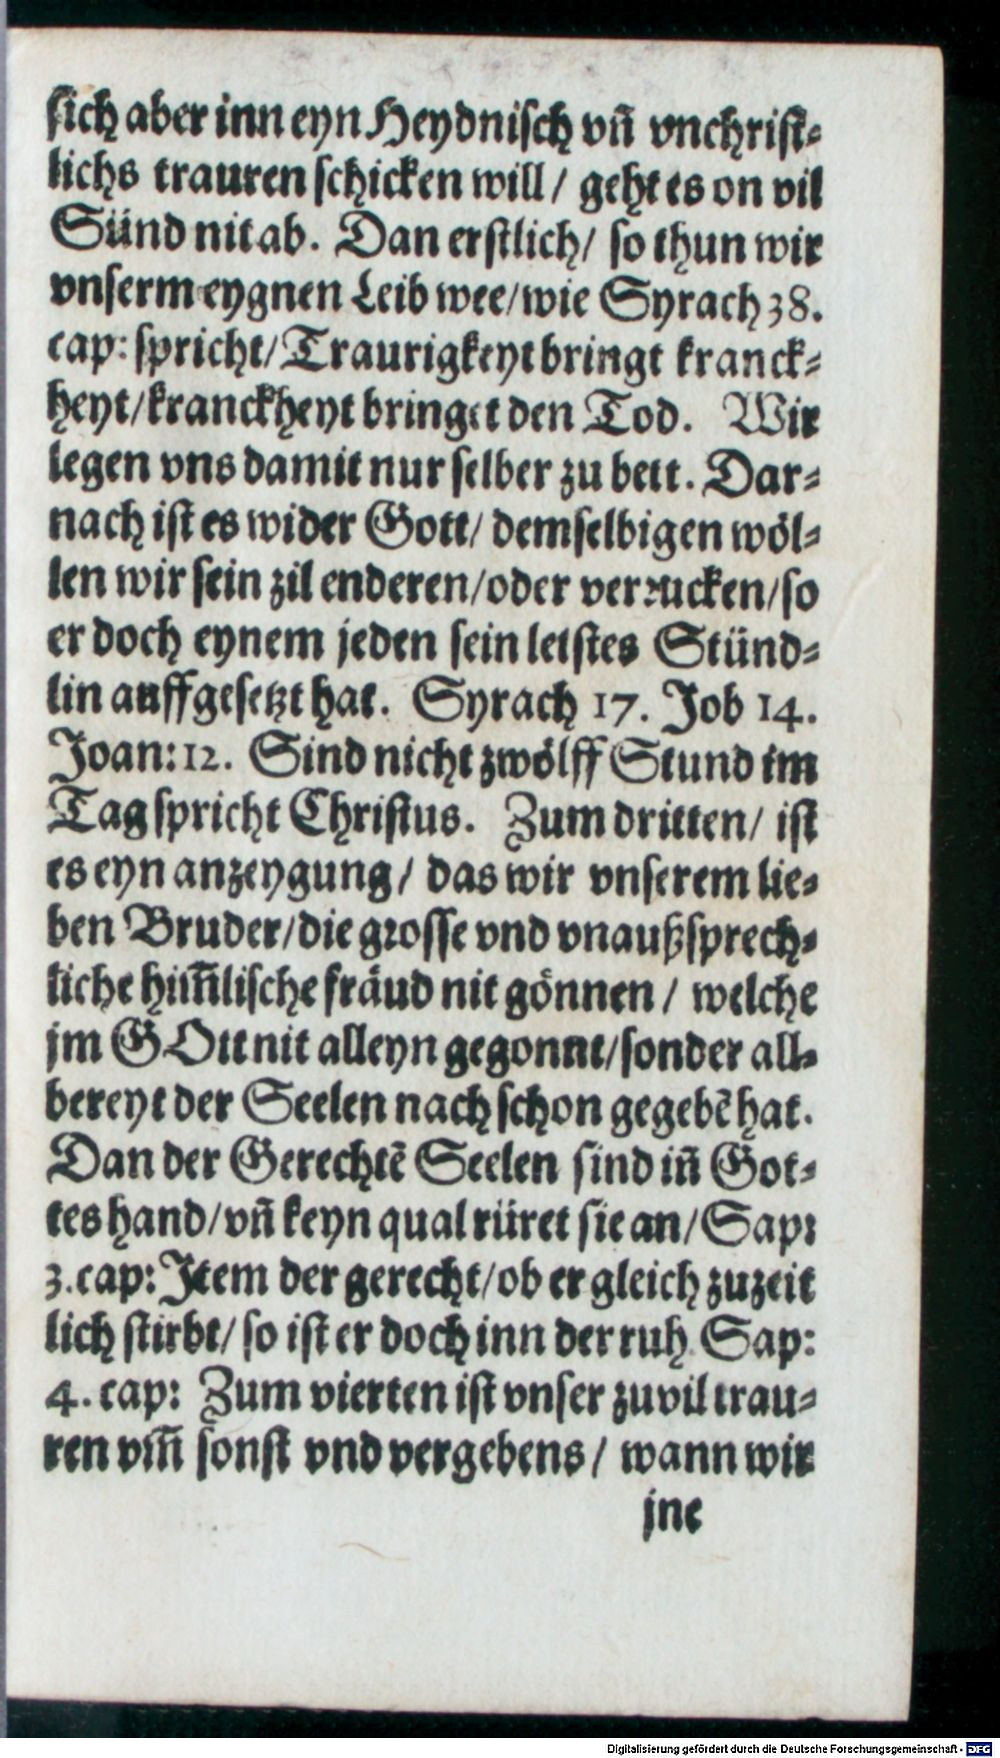 sich aber inn eyn Heydnisch vñ vnchrist⸗
lichs trauren schicken will / geht es on vil
Sünd nit ab. Dan erstlich / so thun wir
vnserm eygnen Leib wee / wie Syrach 38.
cap: spricht / Traurigkeyt bringt kranck⸗
heyt / kranckheyt bringet den Tod. Wir
legen vns damit nur selber zu bett. Dar⸗
nach ist es wider Gott / demselbigen wöl⸗
len wir sein zil enderen / oder verrucken / so
er doch eynem jeden sein letstes Stünd⸗
lin auffgesetzt hat. Syrach 17. Job 14.
Joan: 12. Sind nicht zwölff Stund im
Tag spricht Christus. Zum dritten / ist
es eyn anzeygung / das wir vnserem lie⸗
ben Bruder / die grosse vnd vnaußsprech⸗
liche him̃lische fräud nit gönnen / welche
jm GOtt nit alleyn gegonnt / sonder all⸗
bereyt der Seelen nach schon gegebẽ hat.
Dan der Gerechtẽ Seelen sind iñ Got⸗
tes hand / vñ keyn qual rüret sie an / Sap:
3. cap: Item der gerecht / ob er gleich zuzeit
lich stirbt / so ist er doch inn der ruh. Sap:
4. cap: Zum vierten ist vnser zuvil trau⸗
ren vm̃ sonst vnd vergebens / wann wir
jne
Digitalisierung gefördert durch die Deutsche Forschungsgemeinschaft - DFG